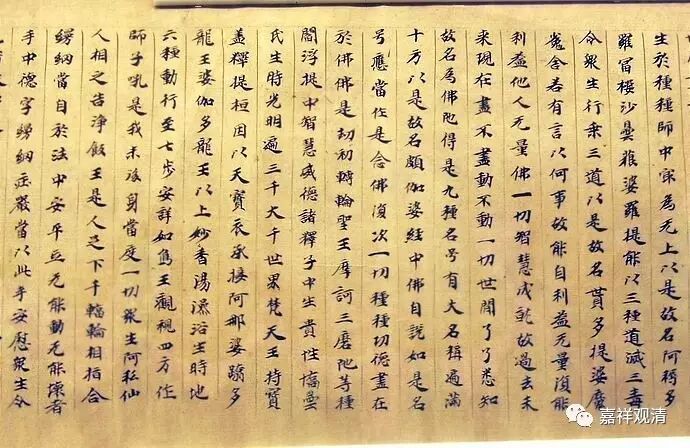 生於種種師中寂為无上以是故名阿耨多
羅冨樓沙曇猿婆羅提能以三種道滅三毒
令衆生行乘三道以是故名貰多提婆魔
㝹舍若有言以何事故能自利益无量復能
利益他人无量佛一切智慧成就故過去未
来現在盡不盡動不動一切世間了了悉知
故名為佛陁得是九種名号有大名稱遍滿
十方以是故名頗伽婆經中佛自說如是名
号應當作是念佛復次一切種種功德盡在
於佛佛是劫初轉輪聖王摩訶三磨陁等種
閻浮提中智慧威德諸釋子中生貴性憍曇
氏生時光明遍三千大千世界梵天王持寶
盖釋提桓因以天寶衣承接阿那婆蹹多
龍王婆伽多龍王以上妙香湯澡浴生時地
六種動行至七步安詳如鴈王觀視四方作
師子吼是我末後身當度一切衆生阿私仙
人相之告淨飯王是人足下千輻輪相指合
縵網當自於法中安平立无能動无能壞者
手中德字縵網庄嚴當以此手安慰衆生令
嘉祥观清